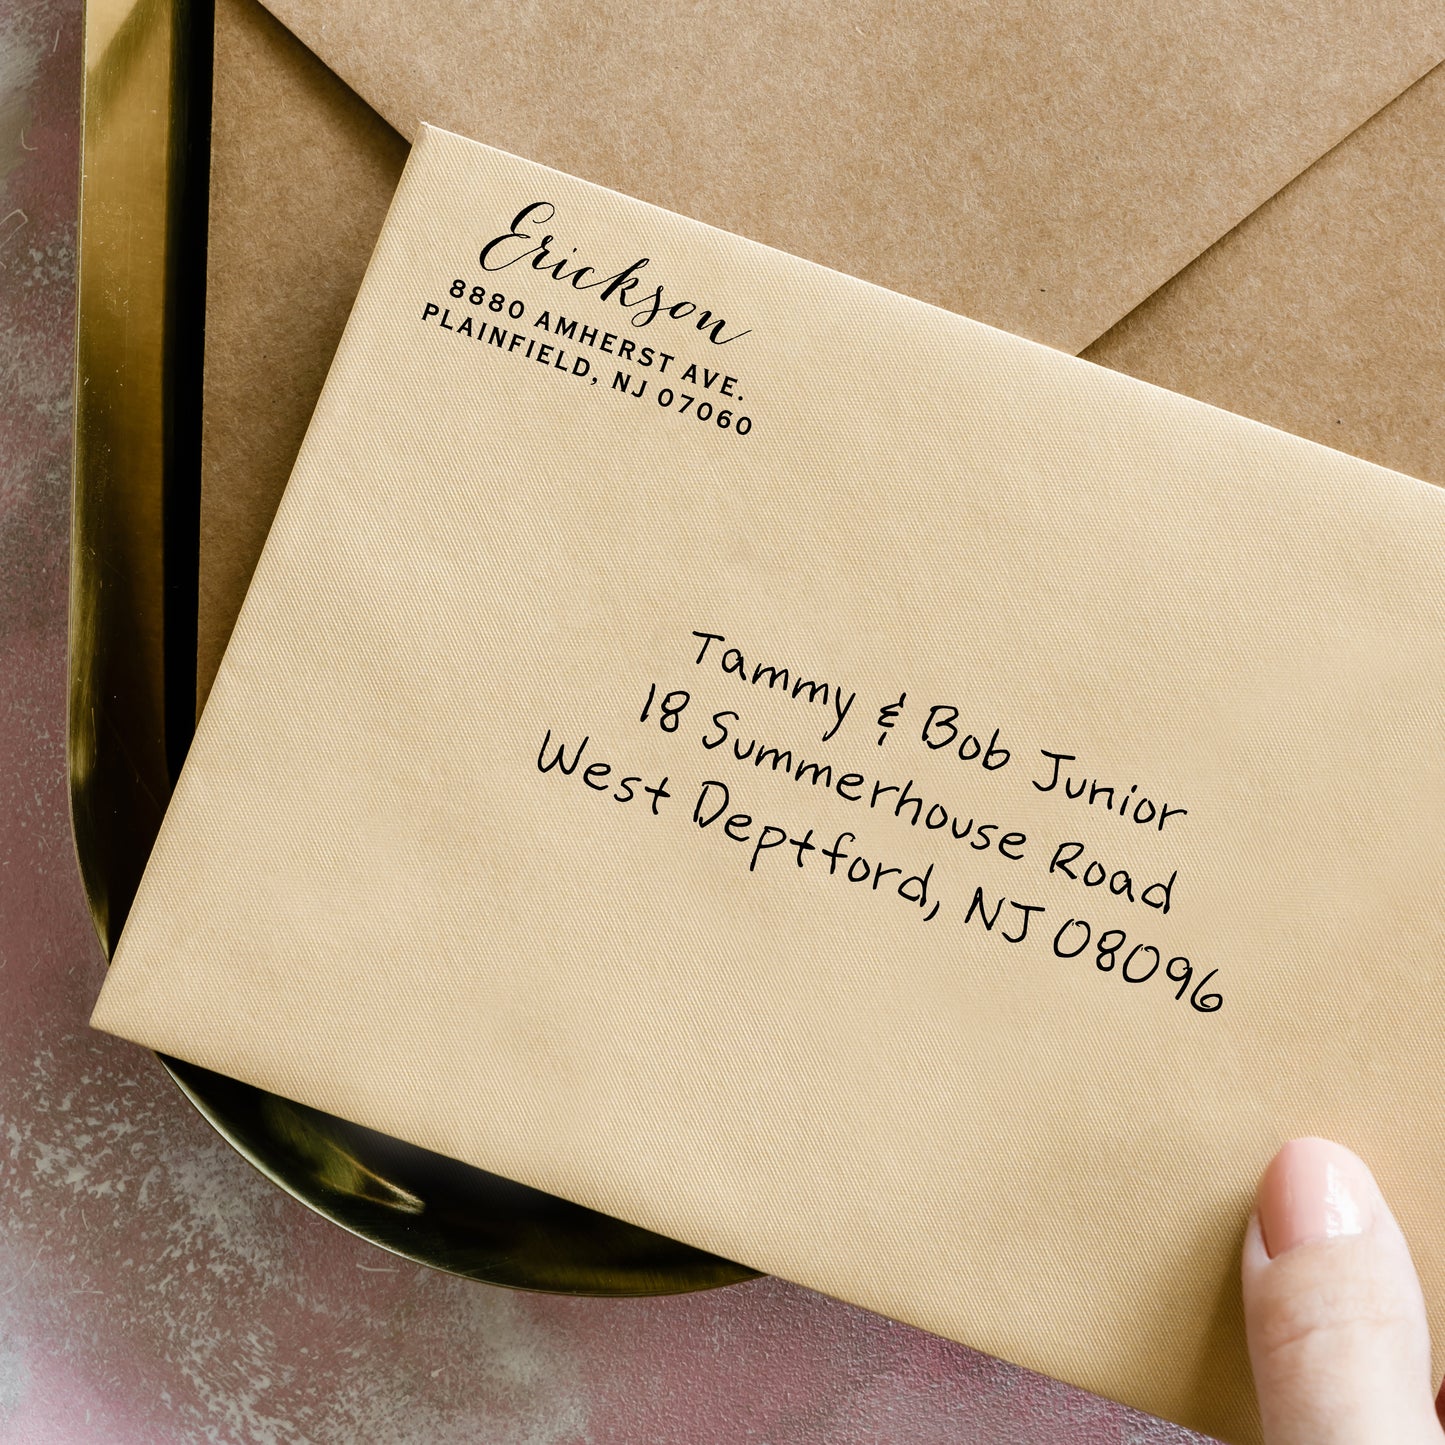 Erickson
8880 AMHERST AVE.
PLAINFIELD, NJ 07060
Tammy & Bob Junior
18 Summerhouse Road
West Deptford, NJ 08096